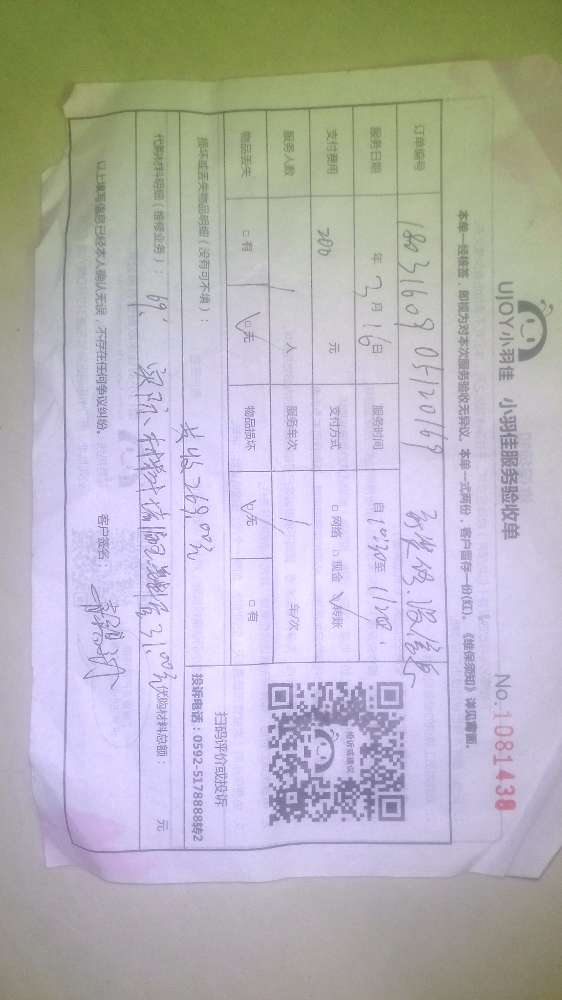 UJOY小羽佳 小羽佳服务验收单
No.1081438
本单一经核签，即视为对本次服务验收无异议，本单一式两份，客户留存一份(红)。《维保须知》详见背面。
订单编号 1803160905120169
服务日期 年 3 月 16 日 服务时间 自 10:30 至
支付费用 200 元 支付方式 □网络 □现金 √转账
服务人数 1 人 服务车次 1 车/次
物品丢失 □有 √无 物品损坏 √无 □有
损坏或丢失物品明细（没有可不填）： 共收269.00元
代购材料明细（维修业务）： 69. 31.00元 代购材料总额： 元
以上填写信息已经本人确认无误，不存在任何争议纠纷。 客户签名：
扫码评价或投诉
投诉电话：0592-5178888转2
投诉或建议